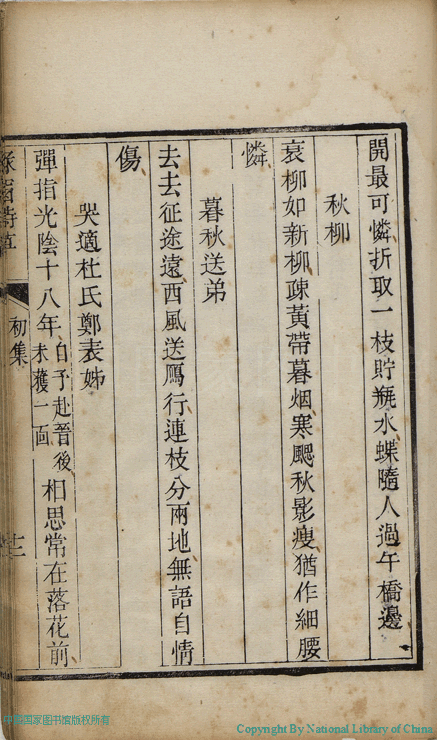 開最可憐折取一枝貯瓶水蝶隨人過午橋邊
秋柳
衰柳如新柳疎黃帶暮烟寒颸秋影瘦猶作細腰
憐
暮秋送弟
去去征途遠西風送鴈行連枝分兩地無語自情
傷
哭適杜氏鄭表姊
彈指光陰十八年自予赴晉後未獲一面相思常在落花前
初集
十二
中国国家图书馆版权所有
Copyright By National Library of China